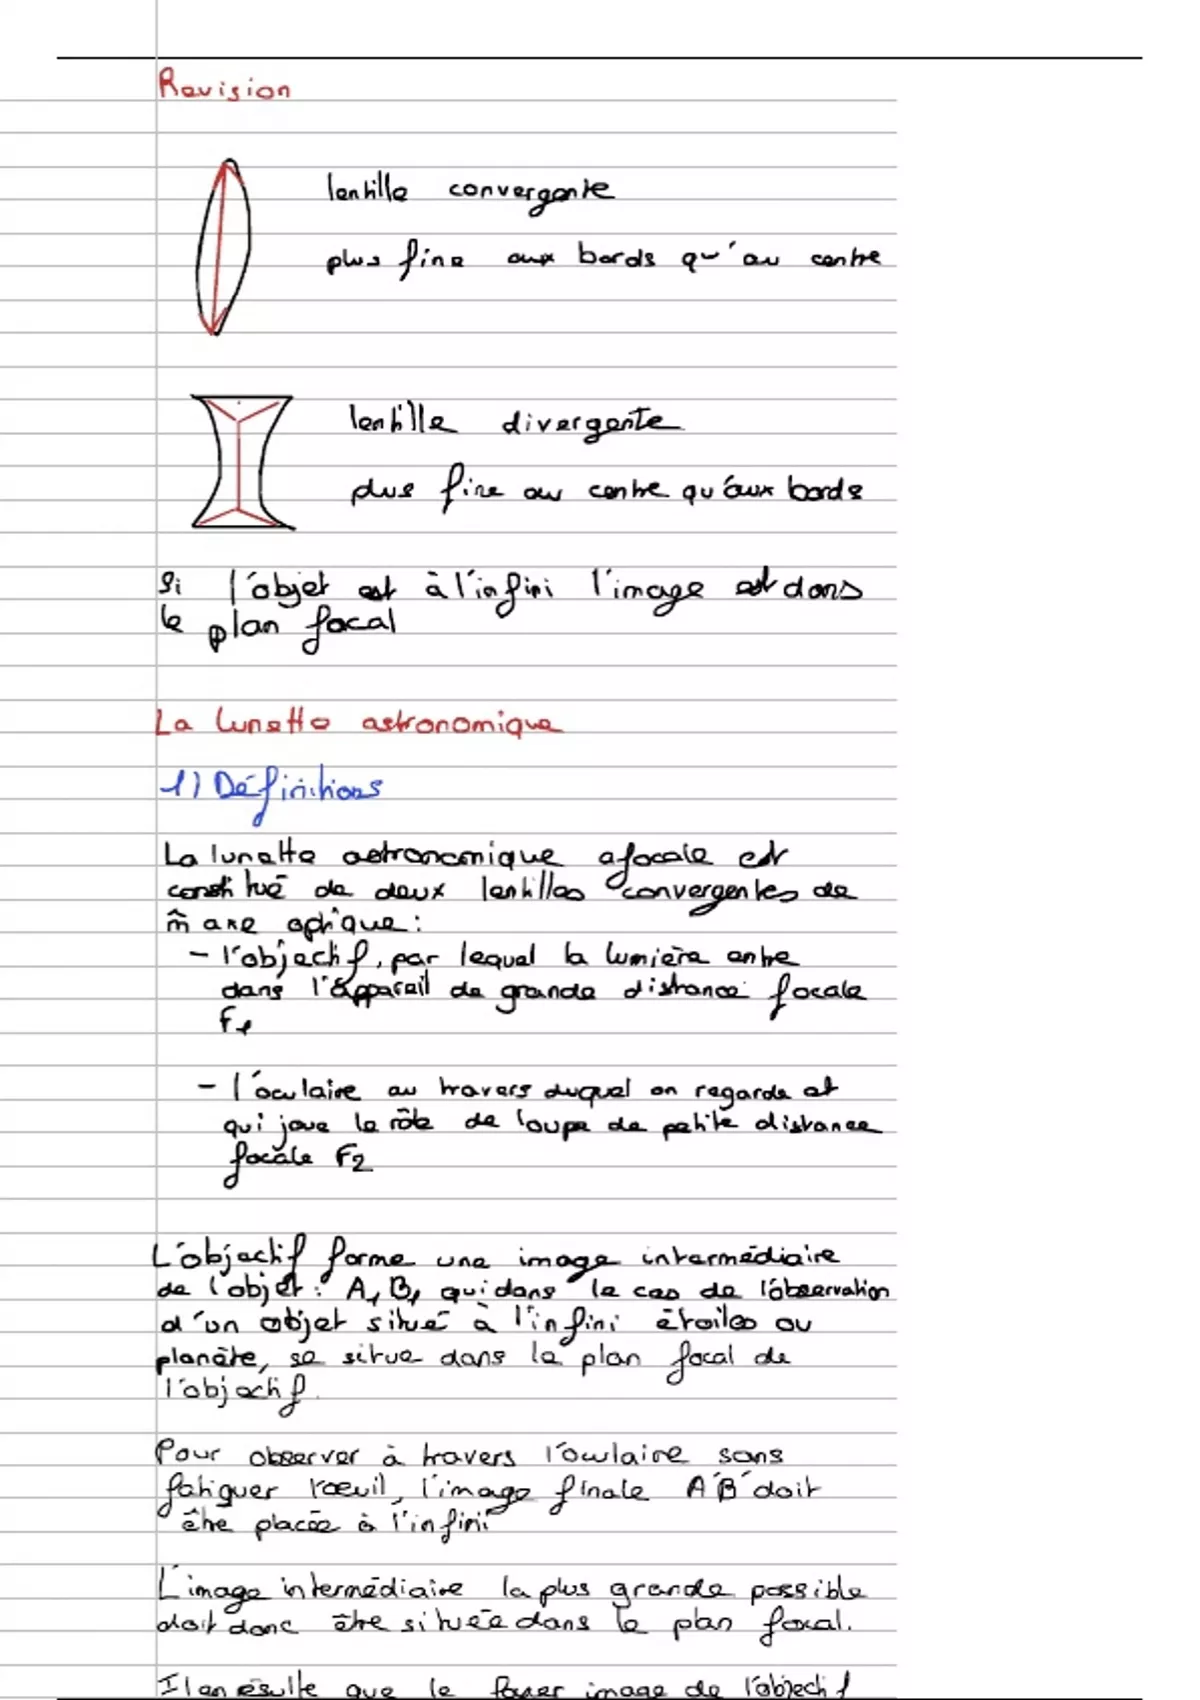 Revision
lentille convergente
plus fine aux bords qu'au centre
lentille divergente
plus fine au centre qu'aux bords
Si l'objet est à l'infini l'image est dans
le plan focal
La lunette astronomique
1) Définitions
La lunette astronomique afocale est
constitué de deux lentilles convergentes de
m̂ axe optique :
- l'objectif, par lequel la lumière entre
dans l'appareil de grande distance focale
F1
- l'oculaire au travers duquel on regarde et
qui joue le rôle de loupe de petite distance
focale F2
L'objectif forme une image intermédiaire
de l'objet : A1B1 qui dans le cas de l'observation
d'un objet situé à l'infini étoiles ou
planète, se situe dans le plan focal de
l'objectif.
Pour observer à travers l'oculaire sans
fatiguer l'œuil, l'image finale A'B' doit
être placée à l'infini
L'image intermédiaire la plus grande possible
doit donc être située dans le plan focal.
Il en résulte que le foyer image de l'objectif